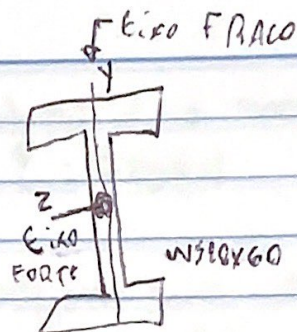 Eixo FRACO
Y
Z
Eixo
FORTE
W510X60